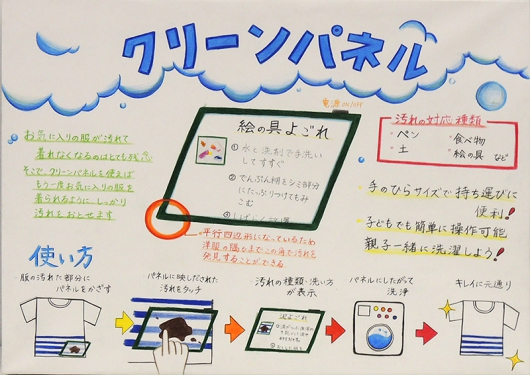 クリーンパネル
電源on/off
お気に入りの服が汚れて
着れなくなるのはとても残念
そこで、クリーンパネルを使えば
もう一度お気に入りの服を
着られるように、しっかり
汚れをおとせます
絵の具よごれ
①水と洗剤で手洗い
してすすぐ
②でんぷん糊をシミ部分
にたっぷりつけてもみ
こむ
平行四辺形になっているため
洋服の隅々までこの角で汚れを
発見することができる
汚れの対応種類
・ペン
・食べ物
・土
・絵の具 など
・手のひらサイズで持ち運びに
便利!
・子どもでも簡単に操作可能
親子一緒に洗濯しよう!
使い方
服の汚れた部分に
パネルをかざす
パネルに映しだされた
汚れをタッチ
汚れの種類・洗い方
が表示
パネルにしたがって
洗浄
キレイに元通り
泥よごれ